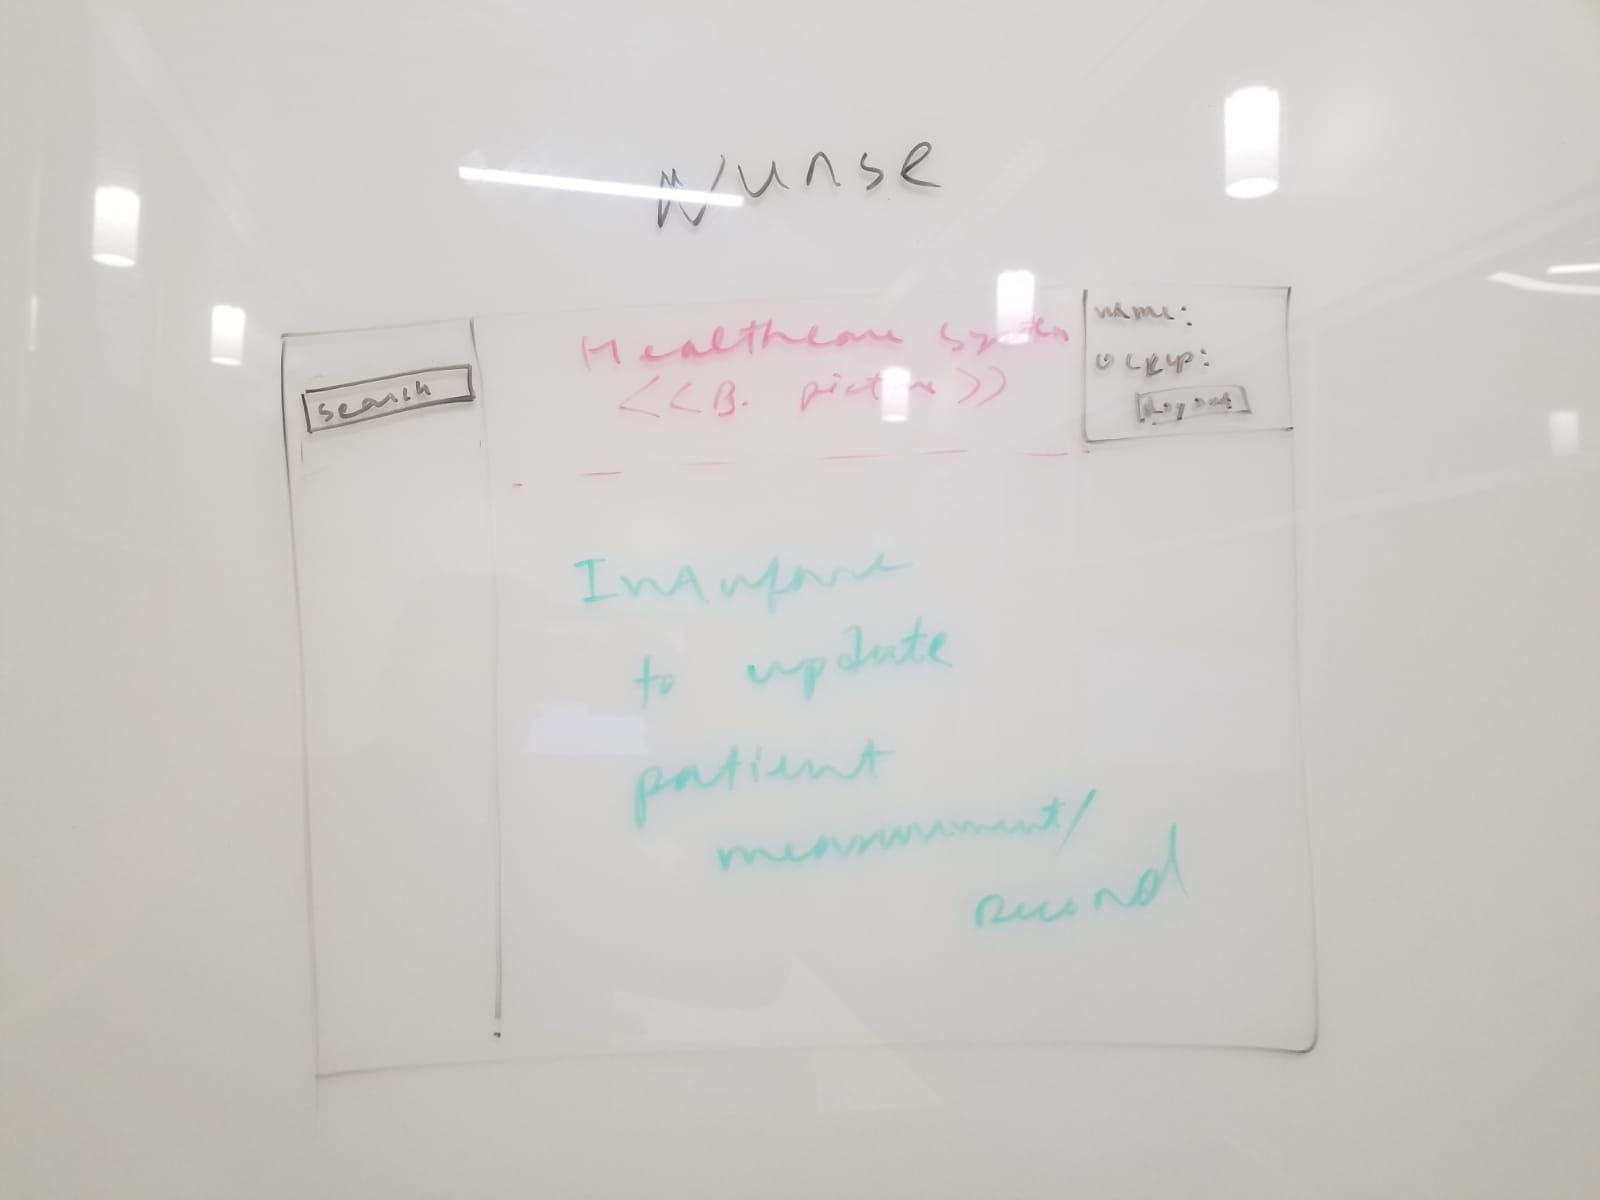 Nurse
Healthcare System
<<B. picture>>
name:
occup:
Logout
search
Interface
to update
patient
measurement/
record